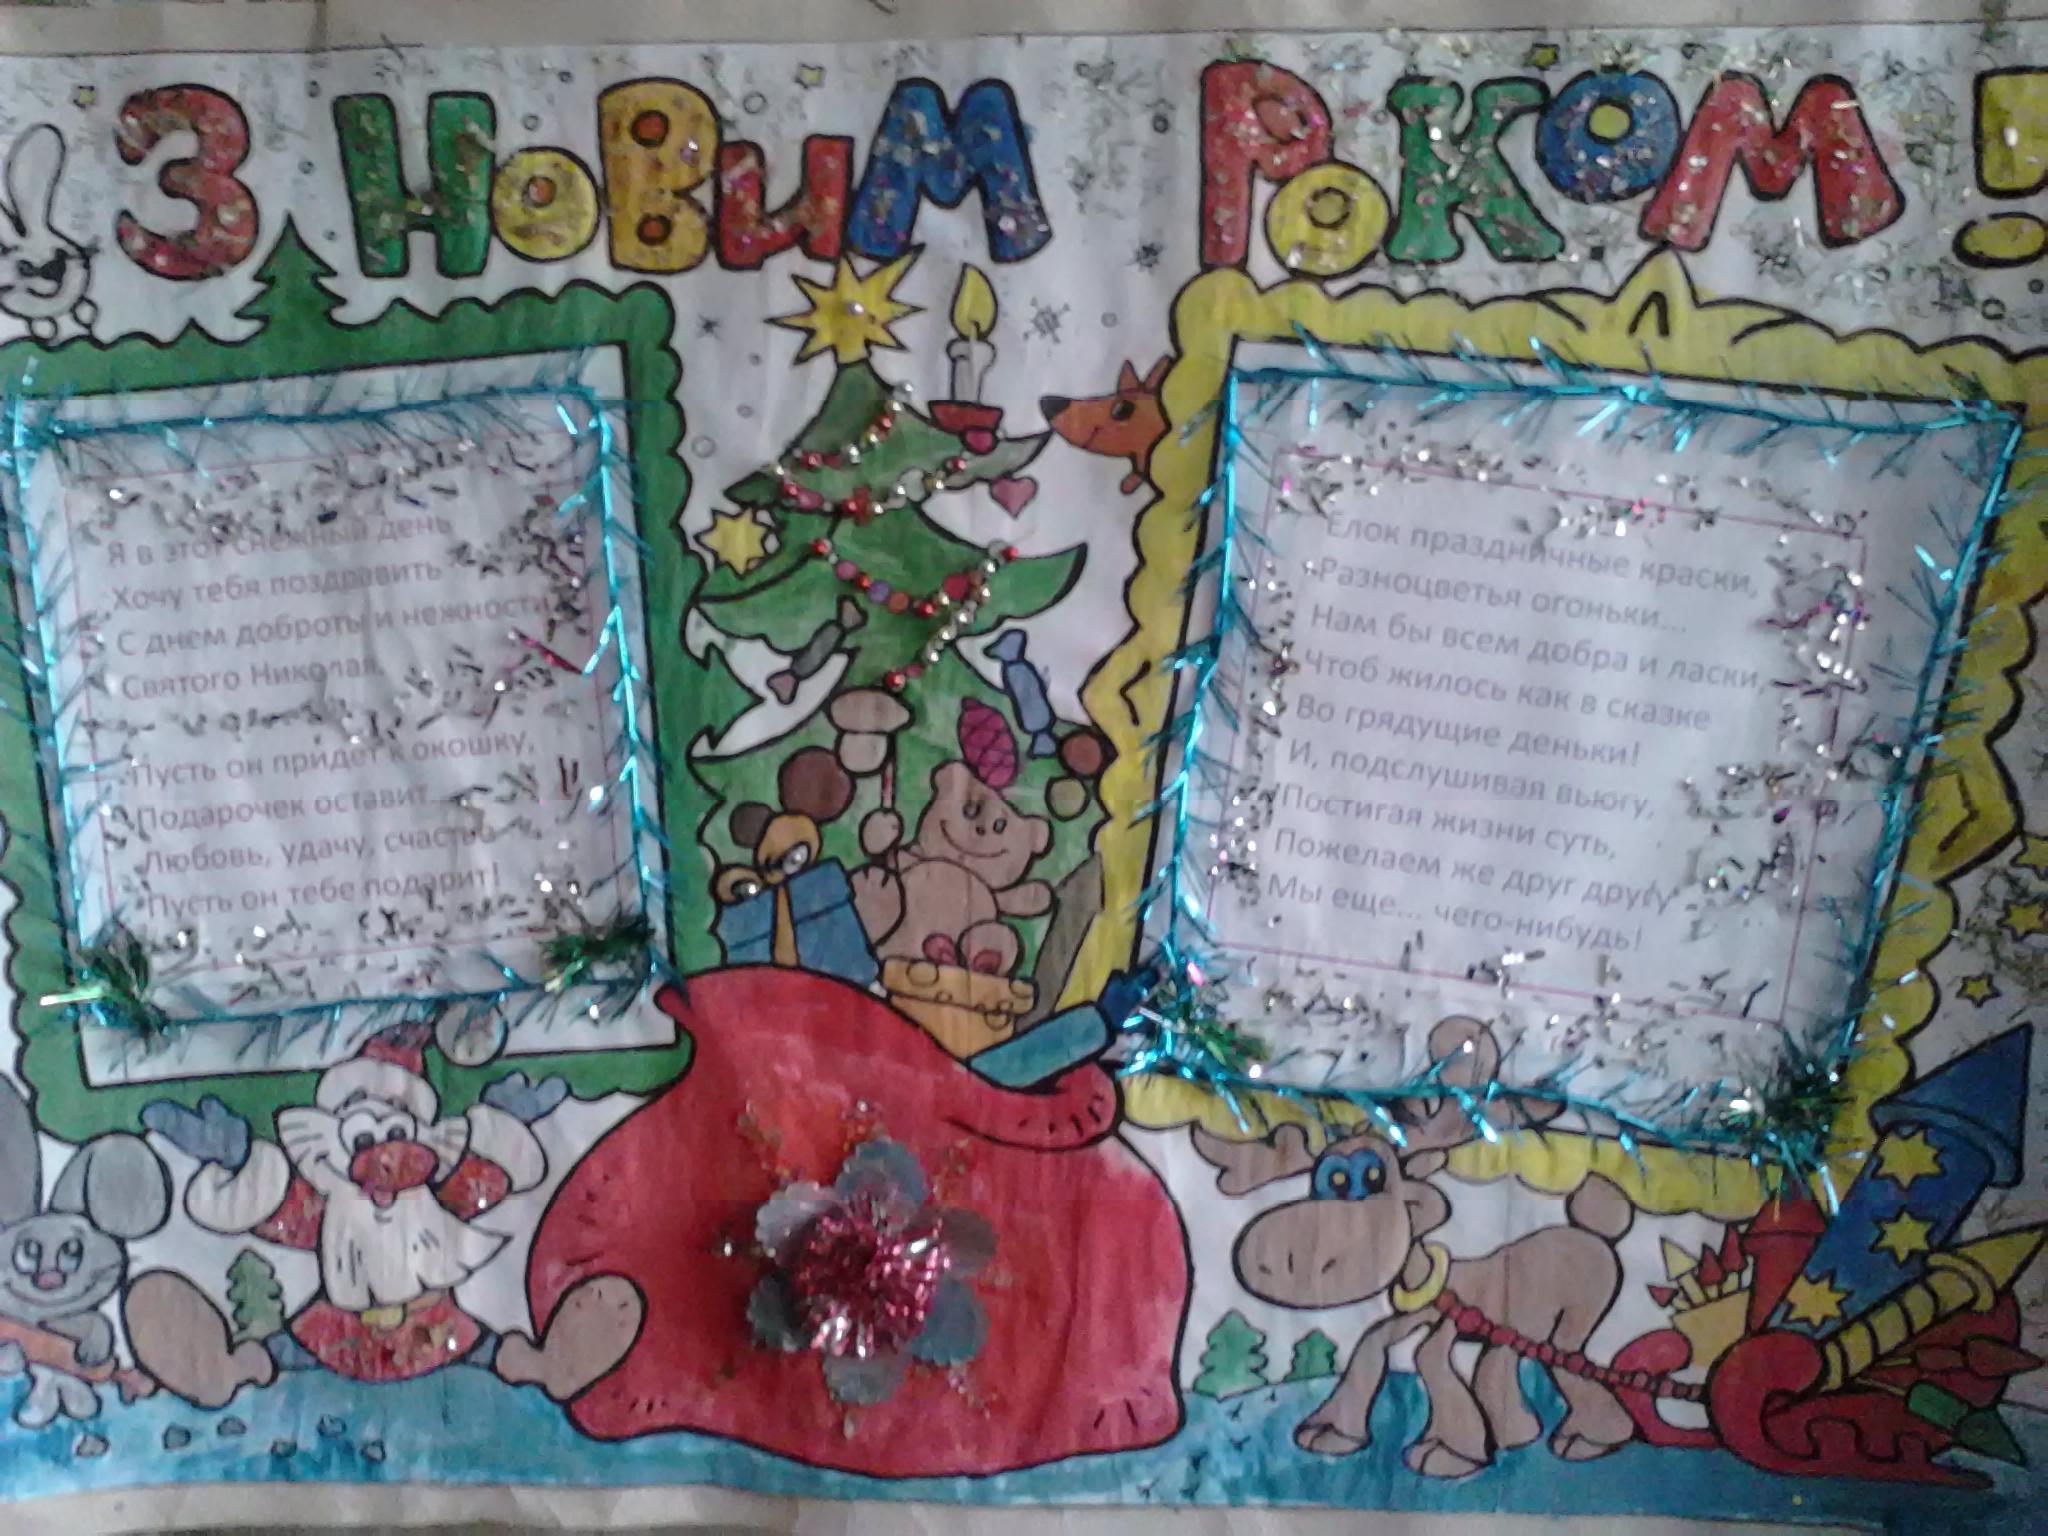 З Новим Роком!
Я в этот снежный день
Хочу тебя поздравить
С днем доброты и нежности
Святого Николая.
Пусть он придет к окошку,
Подарочек оставит...
Любовь, удачу, счастье
Пусть он тебе подарит!
Елок праздничные краски,
Разноцветья огоньки...
Нам бы всем добра и ласки,
Чтоб жилось как в сказке
Во грядущие деньки!
И, подслушивая вьюгу,
Постигая жизни суть,
Пожелаем же друг другу
Мы еще... чего-нибудь!